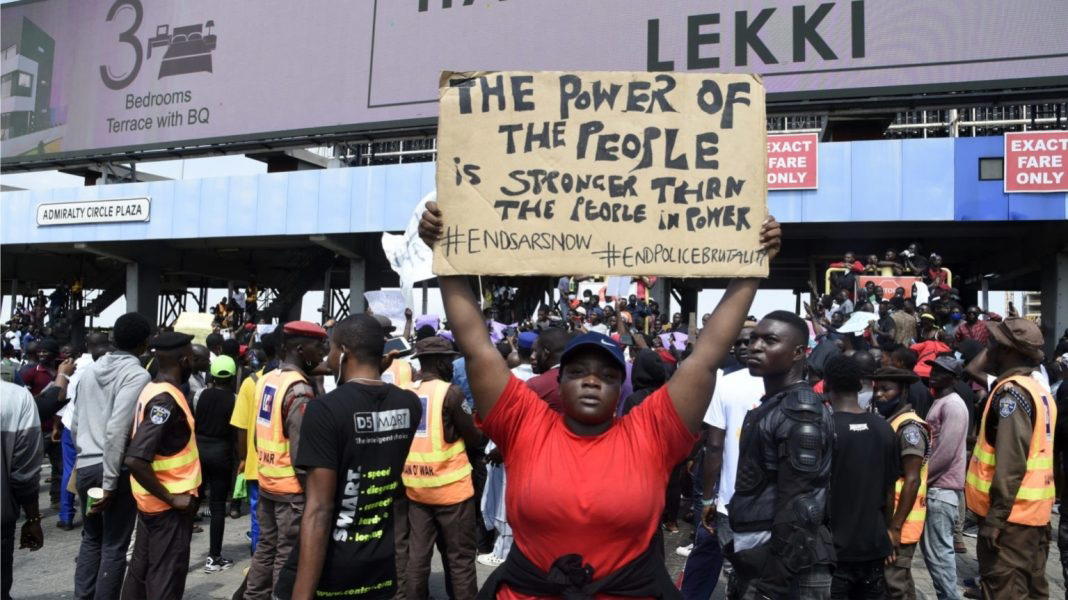 3
Bedrooms
Terrace with BQ
LEKKI
ADMIRALTY CIRCLE PLAZA
EXACT
FARE
ONLY
EXACT
FARE
ONLY
THE POWER OF
THE PEOPLE
is STRONGER THAN
THE PEOPLE in POWER
#ENDSARSNOW #ENDPOLICEBRUTALITY
D5MART
The intelligent choice
SMART